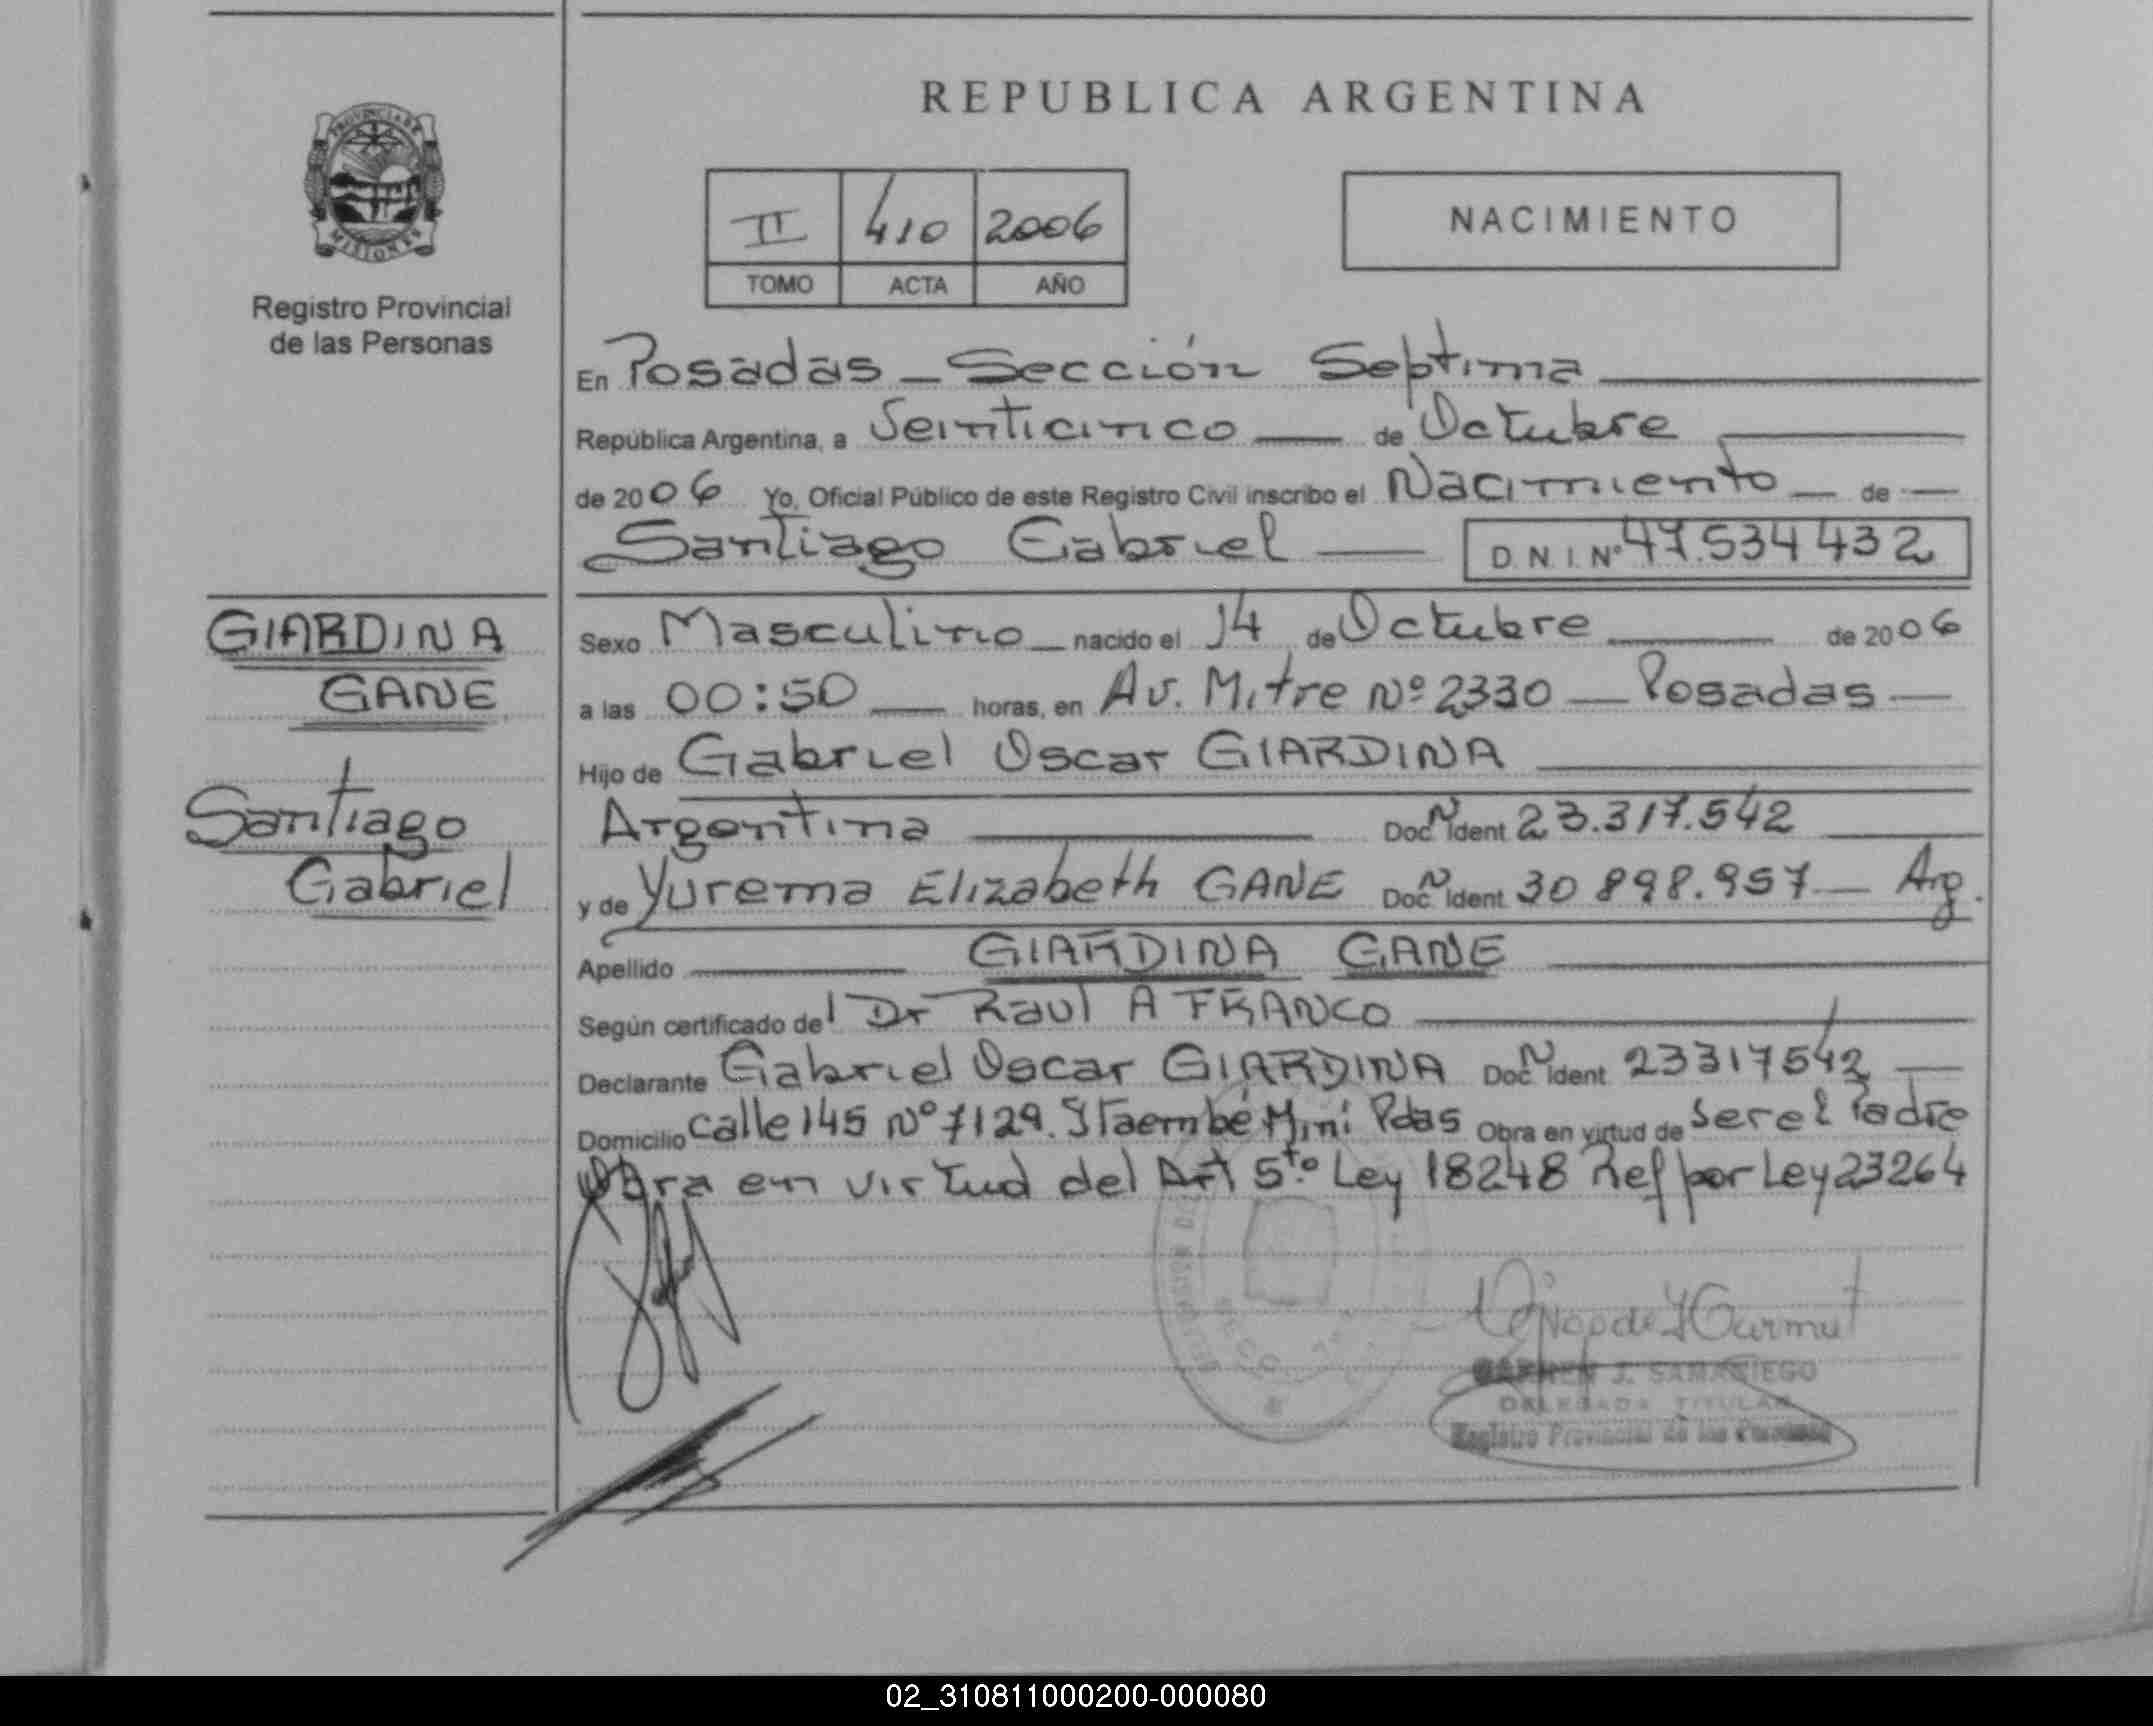 REPUBLICA ARGENTINA
PROVINCIA DE
MISIONES
Registro Provincial
de las Personas
II 410 2006
TOMO ACTA AÑO
NACIMIENTO
En Posadas - Sección Septima
República Argentina, a Veinticinco de Octubre
de 2006 Yo, Oficial Público de este Registro Civil inscribo el Nacimiento de
Santiago Gabriel D.N.I. Nº 47.534432
GIARDINA
GANE
Santiago
Gabriel
Sexo Masculino nacido el 14 de Octubre de 2006
a las 00:50 horas, en Av. Mitre Nº 2330 - Posadas
Hijo de Gabriel Oscar GIARDINA
Argentina Doc. N Ident 23.317.542
y de Yurema Elizabeth GANE Doc. N Ident 30 898.957 Arg.
Apellido GIARDINA GANE
Según certificado del Dr Raul A FRANCO
Declarante Gabriel Oscar GIARDINA Doc. N Ident 23317542
Domicilio calle 145 Nº 7129. Itaembé Miní Pdas Obra en virtud de ser el Padre
Obra en virtud del Art 5to Ley 18248 Ref por Ley 23264
CARMEN J. SAMANIEGO
DELEGADA TITULAR
Registro Provincial de las Personas
02_310811000200-000080